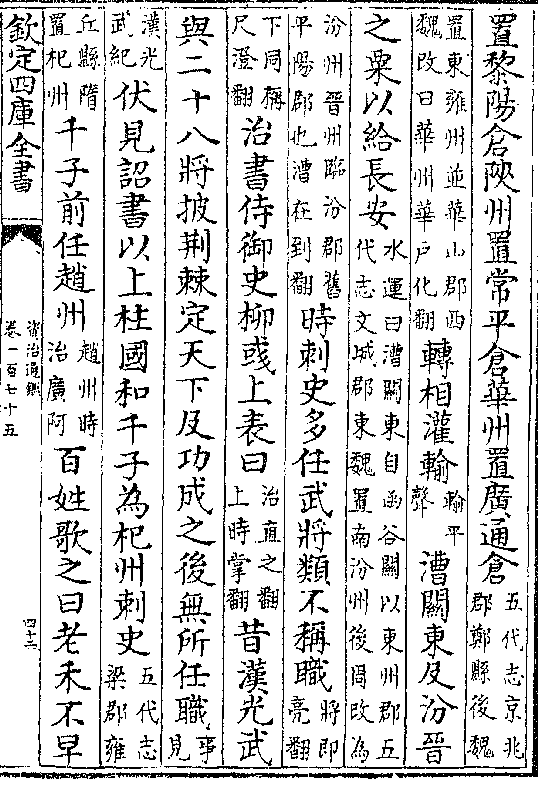 置黎陽倉陜州置常平倉華州置廣通倉五代志京兆郡鄭縣後魏
置東雍州並華山郡西魏改曰華州華户化翻轉相灌輸輸平聲漕關東及汾晉
之粟以給長安水運曰漕關東自函谷關以東州郡五代志文城郡東魏置南汾州後周改為
汾州晉州臨汾郡舊平陽郡也漕在到翻時刺史多任武將類不稱職將即亮翻
下同稱尺澄翻治書侍御史柳彧上表曰治直之翻上時掌翻昔漢光武
與二十八將披荆棘定天下及功成之後無所任職事見
漢光武紀伏見詔書以上柱國和千子為杞州刺史五代志梁郡雍
丘縣隋置杞州千子前任趙州趙州時治廣阿百姓歌之曰老禾不早
欽定四庫全書
資治通鑑
卷一百七十五
四十三